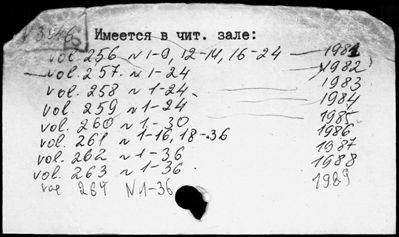 Имеется в чит. зале:
vol. 256 N 1-9, 12-14, 16-24 — 1981
vol. 257 N 1-24 — 1982
vol. 258 N 1-24 — 1983
vol. 259 N 1-24 — 1984
vol. 260 N 1-30 1985
vol. 261 N 1-16, 18-36 1986
vol. 262 N 1-36 1987
vol. 263 N 1-36 1988
vol 264 N 1-36 1989